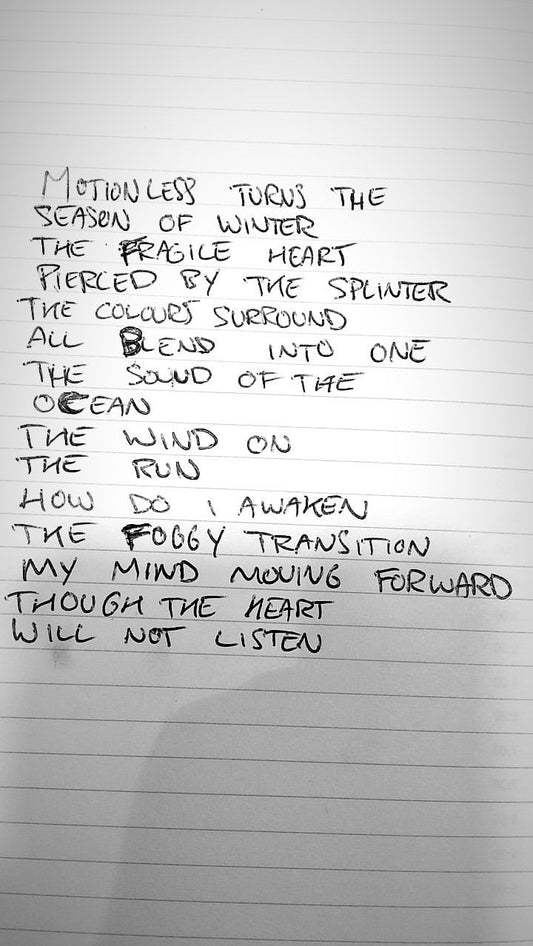 MOTIONLESS TURNS THE
SEASON OF WINTER
THE FRAGILE HEART
PIERCED BY THE SPLINTER
THE COLOURS SURROUND
ALL BLEND INTO ONE
THE SOUND OF THE
OCEAN
THE WIND ON
THE RUN
HOW DO I AWAKEN
THE FOGGY TRANSITION
MY MIND MOVING FORWARD
THOUGH THE HEART
WILL NOT LISTEN